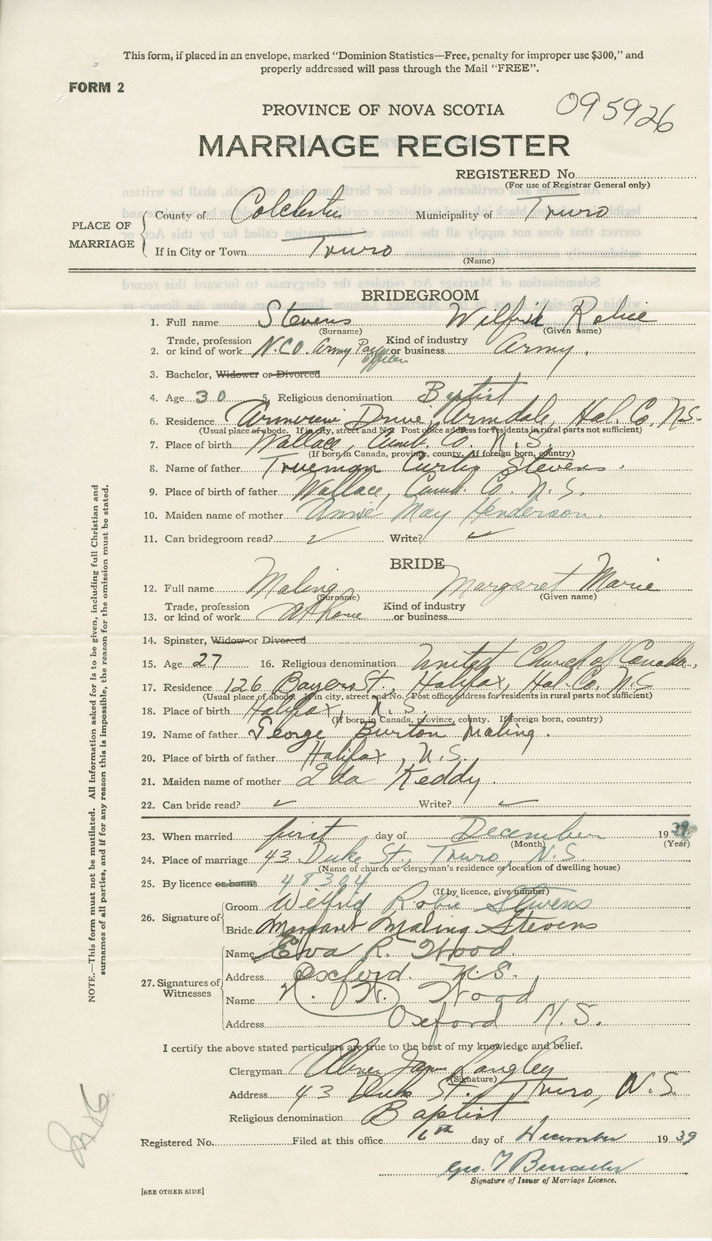 This form, if placed in an envelope, marked "Dominion Statistics—Free, penalty for improper use $300," and
properly addressed will pass through the Mail "FREE".
FORM 2
095926
PROVINCE OF NOVA SCOTIA
MARRIAGE REGISTER
REGISTERED No.
(For use of Registrar General only)
PLACE OF MARRIAGE
County of Colchester Municipality of Truro
If in City or Town Truro
(Name)
BRIDEGROOM
1. Full name Stevens Wilfrid Robie
(Surname) (Given name)
2. Trade, profession or kind of work N.C.O. Army Pay office Kind of industry or business Army.
3. Bachelor, Widower or Divorced
4. Age 30 5. Religious denomination Baptist
6. Residence Drive, Armdale, Hal. Co. N.S.
(Usual place of abode. If in city, street and No. Post office address for residents in rural parts not sufficient)
7. Place of birth Wallace, Cumb. Co. N.S.
(If born in Canada, province, county. If foreign born, country)
8. Name of father Trueman Curtis Stevens.
9. Place of birth of father Wallace, Cumb. Co. N.S.
10. Maiden name of mother Annie May Henderson.
11. Can bridegroom read? ✓ Write? ✓
BRIDE
12. Full name Maling Margaret Marie
(Surname) (Given name)
13. Trade, profession or kind of work At home Kind of industry or business
14. Spinster, Widow or Divorced
15. Age 27 16. Religious denomination United Church of Canada.
17. Residence 126 Bayers St., Halifax, Hal. Co. N.S
(Usual place of abode. If in city, street and No. Post office address for residents in rural parts not sufficient)
18. Place of birth Halifax, N.S.
(If born in Canada, province, county. If foreign born, country)
19. Name of father George Burton Maling.
20. Place of birth of father Halifax, N.S.
21. Maiden name of mother Ida Keddy.
22. Can bride read? ✓ Write? ✓
23. When married first day of December 1939
(Month) (Year)
24. Place of marriage 43 Duke St., Truro, N.S.
(Name of church or clergyman's residence or location of dwelling house)
25. By licence or banns 48304
(If by licence, give number)
26. Signature of Groom Wilfrid Robie Stevens
Bride Margaret Maling Stevens
27. Signatures of Witnesses Name Eva R. Wood
Address Oxford. N.S.
Name Wood
Address Oxford N.S.
I certify the above stated particulars are true to the best of my knowledge and belief.
Clergyman Abner Langley
(Signature)
Address 43 Duke St., Truro, N.S.
Religious denomination Baptist
Registered No. Filed at this office day of December 1939
Geo.
Signature of Issuer of Marriage Licence.
[SEE OTHER SIDE]
NOTE.—This form must not be mutilated. All information asked for is to be given, including full Christian and
surnames of all parties, and if for any reason this is impossible, the reason for the omission must be stated.